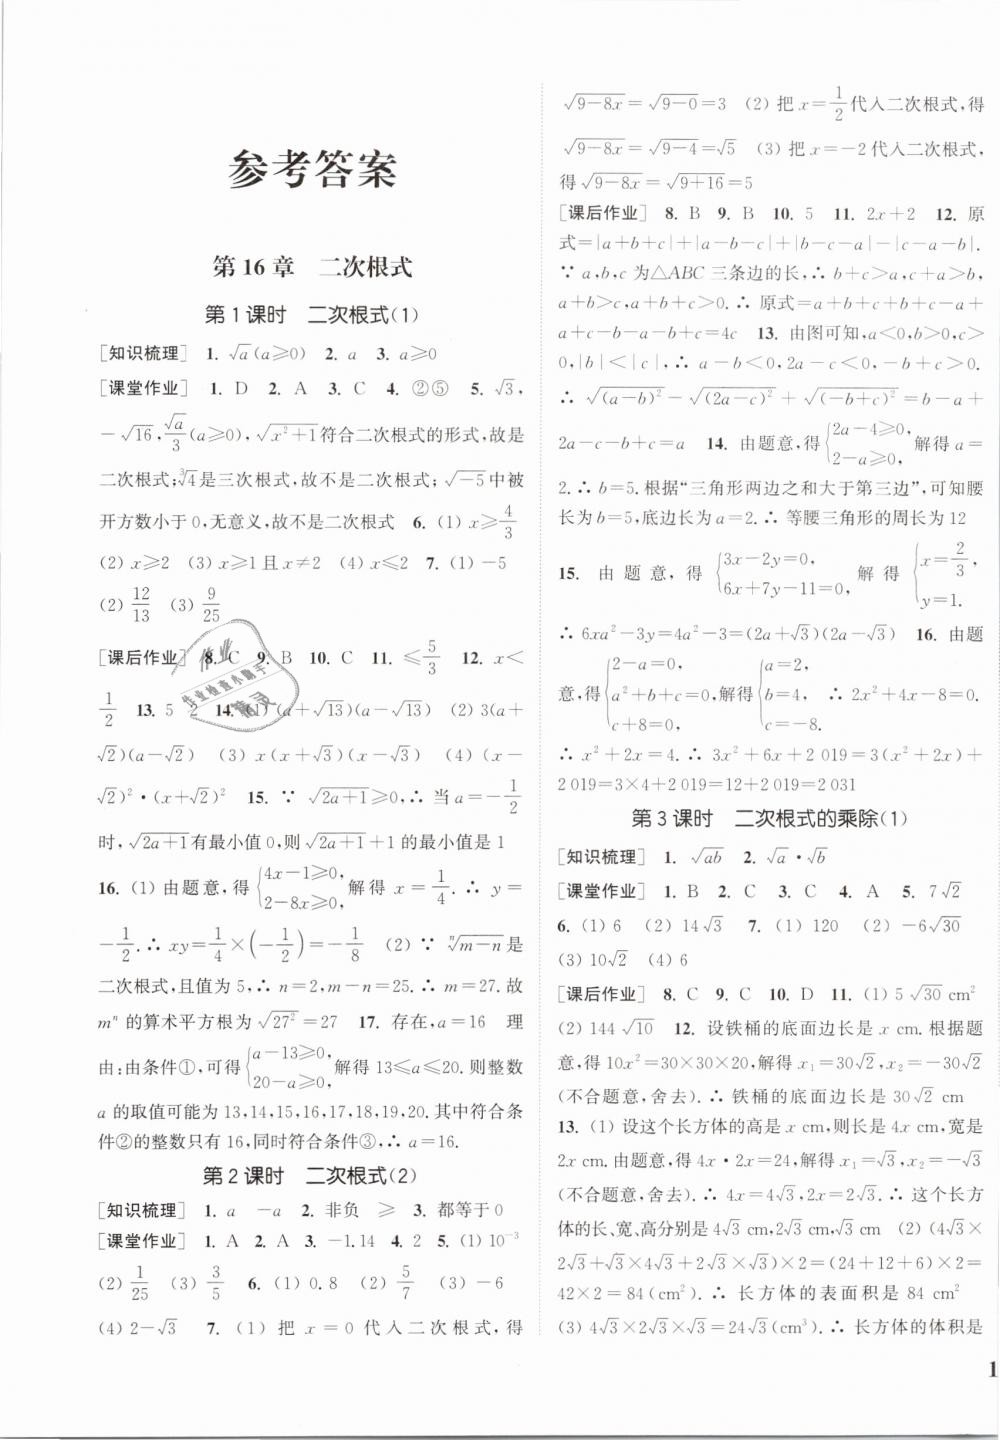 参考答案
第16章　二次根式
第1课时　二次根式(1)
[知识梳理]　1. √a(a≥0)　2. a　3. a≥0
[课堂作业]　1. D　2. A　3. C　4. ②⑤　5. √3,
-√16, √a/3(a≥0), √(x²+1)符合二次根式的形式,故是
二次根式;∛4是三次根式,故不是二次根式;√(-5)中被
开方数小于0,无意义,故不是二次根式　6. (1) x≥4/3
(2) x≥2　(3) x≥1且x≠2　(4) x≤2　7. (1) -5
(2) 12/13　(3) 9/25
[课后作业]　8. C　9. B　10. C　11. ≤5/3　12. x<
1/2　13. 5　2　14. (1) (a+√13)(a-√13)　(2) 3(a+
√2)(a-√2)　(3) x(x+√3)(x-√3)　(4) (x-
√2)²·(x+√2)²　15. ∵ √(2a+1)≥0,∴ 当a=-1/2
时,√(2a+1)有最小值0,则√(2a+1)+1的最小值是1
16. (1) 由题意,得{4x-1≥0, 2-8x≥0,解得x=1/4.∴ y=
-1/2.∴ xy=1/4×(-1/2)=-1/8　(2) ∵ ⁿ√(m-n)是
二次根式,且值为5,∴ n=2,m-n=25.∴ m=27.故
mⁿ的算术平方根为√(27²)=27　17. 存在,a=16　理
由:由条件①,可得{a-13≥0, 20-a≥0,解得13≤a≤20.则整数
a的取值可能为13,14,15,16,17,18,19,20.其中符合条
件②的整数只有16,同时符合条件③,∴ a=16.
第2课时　二次根式(2)
[知识梳理]　1. a　-a　2. 非负　≥　3. 都等于0
[课堂作业]　1. A　2. A　3. -1.14　4. 2　5. (1) 10⁻³
(2) 1/25　(3) 3/5　6. (1) 0.8　(2) 5/7　(3) -6
(4) 2-√3　7. (1) 把x=0代入二次根式,得
√(9-8x)=√(9-0)=3　(2) 把x=1/2代入二次根式,得
√(9-8x)=√(9-4)=√5　(3) 把x=-2代入二次根式,
得√(9-8x)=√(9+16)=5
[课后作业]　8. B　9. B　10. 5　11. 2x+2　12. 原
式=|a+b+c|+|a-b-c|+|b-c-a|-|c-a-b|.
∵ a,b,c为△ABC三条边的长,∴ b+c>a,c+a>b,
a+b>c,a+b+c>0.∴ 原式=a+b+c+b+c-a+
a+c-b-a-b+c=4c　13. 由图可知,a<0,b>0,c>
0,|b|<|c|,∴ a-b<0,2a-c<0,-b+c>0.
∴ √((a-b)²)-√((2a-c)²)+√((-b+c)²)=b-a+
2a-c-b+c=a　14. 由题意,得{2a-4≥0, 2-a≥0,解得a=
2.∴ b=5.根据“三角形两边之和大于第三边”,可知腰
长为b=5,底边长为a=2.∴ 等腰三角形的周长为12
15. 由题意,得{3x-2y=0, 6x+7y-11=0,解得{x=2/3, y=1.
∴ 6xa²-3y=4a²-3=(2a+√3)(2a-√3)　16. 由题
意,得{2-a=0, a²+b+c=0, c+8=0.解得{a=2, b=4, c=-8.∴ 2x²+4x-8=0.
∴ x²+2x=4.∴ 3x²+6x+2 019=3(x²+2x)+
2 019=3×4+2 019=12+2 019=2 031
第3课时　二次根式的乘除(1)
[知识梳理]　1. √ab　2. √a·√b
[课堂作业]　1. B　2. C　3. C　4. A　5. 7√2
6. (1) 6　(2) 14√3　7. (1) 120　(2) -6√30
(3) 10√2　(4) 6
[课后作业]　8. C　9. C　10. D　11. (1) 5√30 cm²
(2) 144√10　12. 设铁桶的底面边长是x cm.根据题
意,得10x²=30×30×20,解得x₁=30√2,x₂=-30√2
(不合题意,舍去).∴ 铁桶的底面边长是30√2 cm
13. (1) 设这个长方体的高是x cm,则长是4x cm,宽是
2x cm.由题意,得4x·2x=24,解得x₁=√3,x₂=-√3
(不合题意,舍去).∴ 4x=4√3,2x=2√3.∴ 这个长方
体的长、宽、高分别是4√3 cm,2√3 cm,√3 cm　(2) (4√3×
2√3+√3×4√3+2√3×√3)×2=(24+12+6)×2=
42×2=84(cm²).∴ 长方体的表面积是84 cm²
(3) 4√3×2√3×√3=24√3(cm³).∴ 长方体的体积是
1